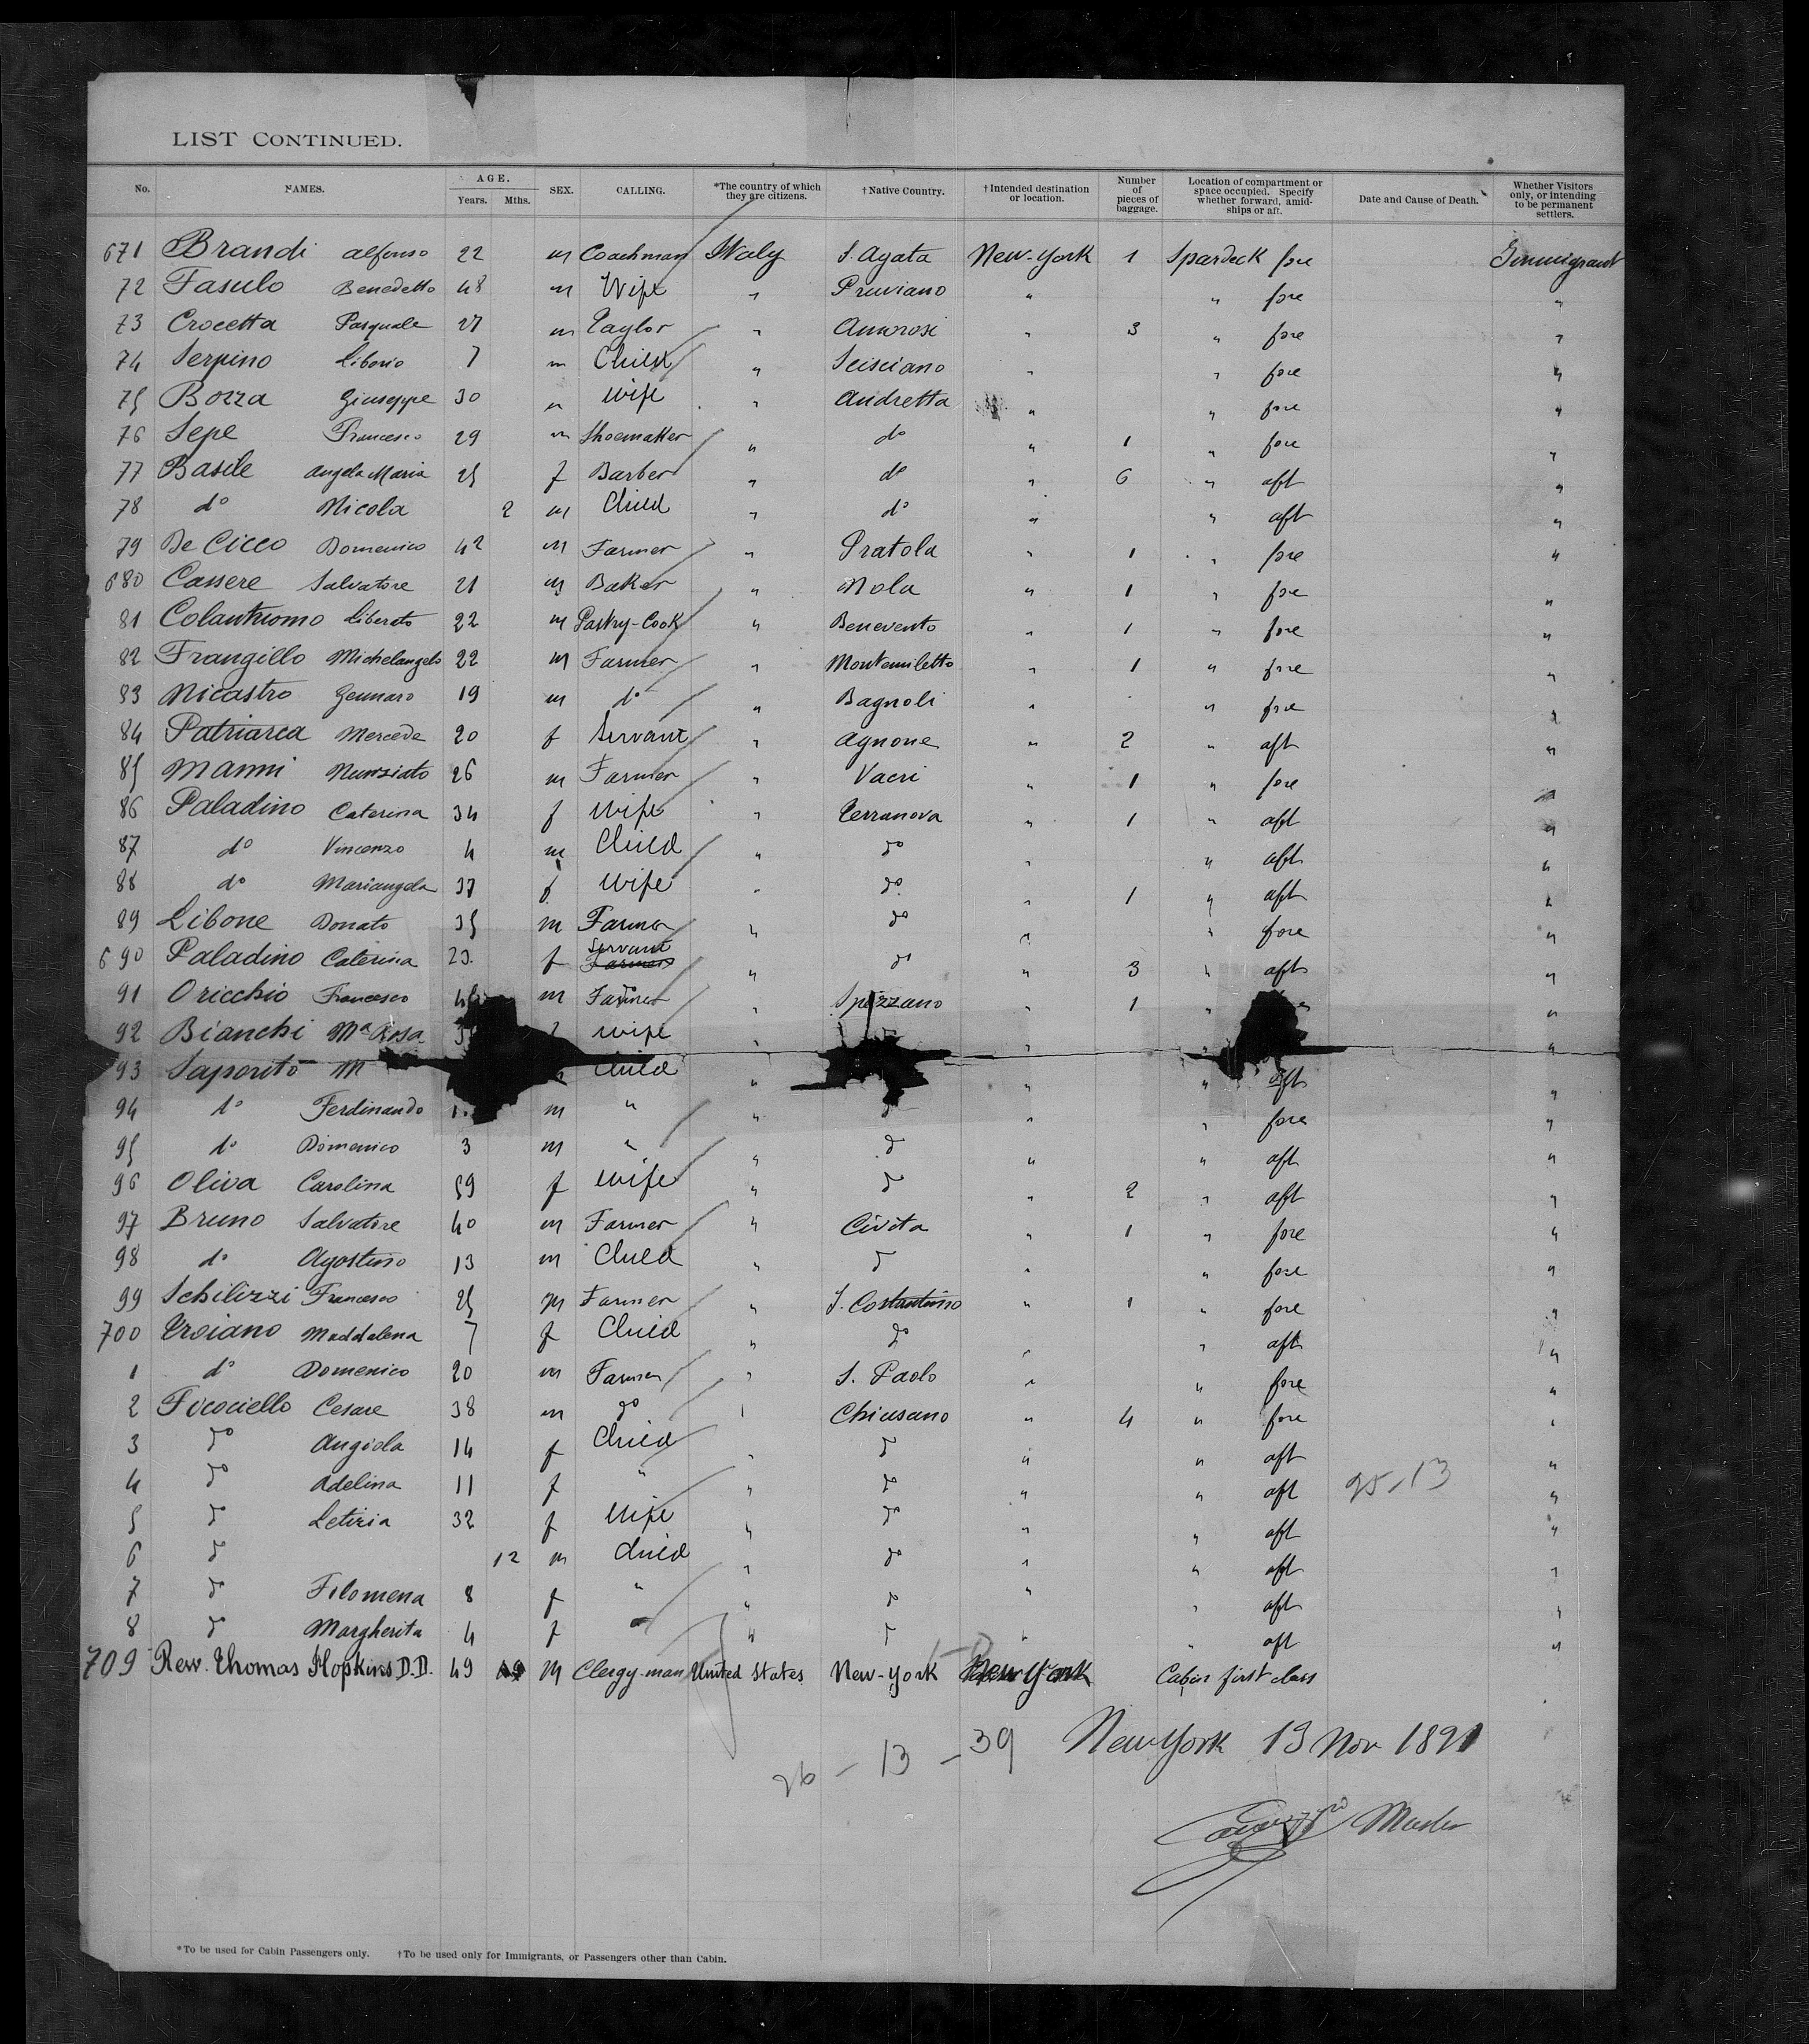 LIST CONTINUED.
No. NAMES. AGE. Years. Mths. SEX. CALLING. *The country of which they are citizens. †Native Country. †Intended destination or location. Number of pieces of baggage. Location of compartment or space occupied. Specify whether forward, amidships or aft. Date and Cause of Death. Whether Visitors only, or intending to be permanent settlers.
671 Brandi Alfonso 22 m Coachman Italy S. Agata New-York 1 Spardeck fore Immigrant
72 Fasulo Benedetto 48 m Wife " Pruviano " " fore "
73 Crocetta Pasquale 27 m Taylor " Amorosi " 3 " fore "
74 Serpino Liborio 7 m Child " Scisciano " " fore "
75 Bozza Giuseppe 30 m Wife " Andretta " " fore "
76 Sepe Francesco 29 m Shoemaker " do " 1 " fore "
77 Basile Angela Maria 25 f Barber " do " 6 " aft "
78 do Nicola 2 m Child " do " " aft "
79 De Cicco Domenico 42 m Farmer " Pratola " 1 " fore "
680 Cassere Salvatore 21 m Baker " Nola " 1 " fore "
81 Colantuomo Liberato 22 m Pastry-Cook " Benevento " 1 " fore "
82 Frangillo Michelangelo 22 m Farmer " Montemiletto " 1 " fore "
83 Nicastro Gennaro 19 m do " Bagnoli " " fore "
84 Patriarca Mercede 20 f Servant " Agnone " 2 " aft "
85 Manni Nunziato 26 m Farmer " Vacri " 1 " fore "
86 Paladino Caterina 34 f Wife " Terranova " 1 " aft "
87 do Vincenzo 4 m Child " do " " aft "
88 do Mariangela 37 f Wife " do " 1 " aft "
89 Libone Donato 35 m Farmer " do " " fore "
690 Paladino Caterina 23 f Servant " do " 3 " aft "
91 Oricchio Francesco m Farmer " Spezzano " 1 " "
92 Bianchi Ma Rosa Wife " " "
93 Saporito M Child " " " aft "
94 do Ferdinando m " " " " fore "
95 do Domenico 3 m " " do " " aft "
96 Oliva Carolina 59 f Wife " do " 2 " aft "
97 Bruno Salvatore 40 m Farmer " Civita " 1 " fore "
98 do Agostino 13 m Child " do " " fore "
99 Schilizzi Francesco 25 m Farmer " S. Costantino " 1 " fore "
700 Troiano Maddalena 7 f Child " do " " aft "
1 do Domenico 20 m Farmer " S. Paolo " " fore "
2 Fucociello Cesare 38 m do " Chiusano " 4 " fore "
3 do Angiola 14 f Child " do " " aft "
4 do Adelina 11 f " " do " " aft 25-13 "
5 do Letizia 32 f Wife " do " " aft "
6 do 12 m Child " do " " aft "
7 do Filomena 8 f " " do " " aft "
8 do Margherita 4 f " " do " " aft "
709 Rew. Thomas Hopkins D.D. 49 M Clergy-man United States New-York New York Cabin first class
26 - 13 - 39 New York 13 Nov 1891
Master
*To be used for Cabin Passengers only. †To be used only for Immigrants, or Passengers other than Cabin.